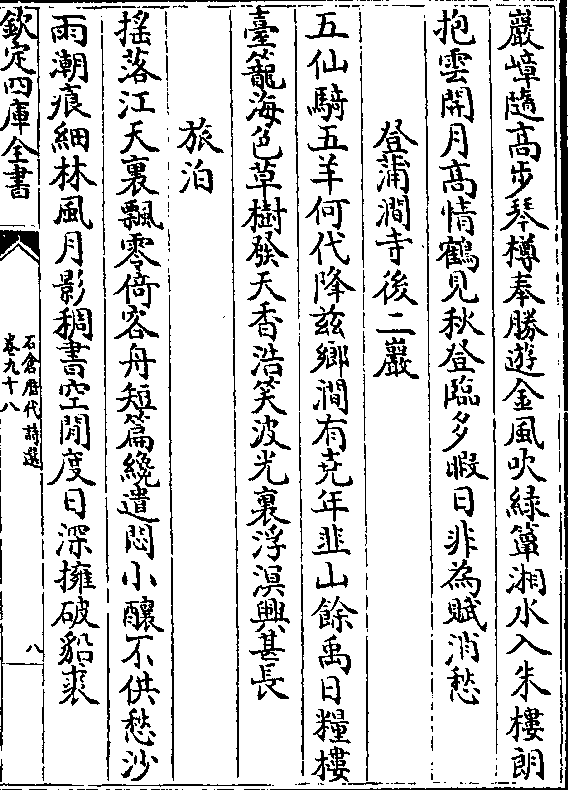 巖嶂隨高步琴樽奉勝遊金風吹緑簟湘水入朱樓朗
抱雲開月高情鶴見秋登臨多暇日非為賦消愁
登蒲澗寺後二巖
五仙騎五羊何代降兹鄉澗有尭年韭山餘禹日糧樓
臺籠海色草樹發天香浩笑波光裏浮溟興甚長
旅泊
摇落江天裏飄零倚客舟短篇纔遣悶小釀不供愁沙
雨潮痕細林風月影稠書空閒度日深擁破貂裘
欽定四庫全書
石倉歴代詩選
卷九十八
八